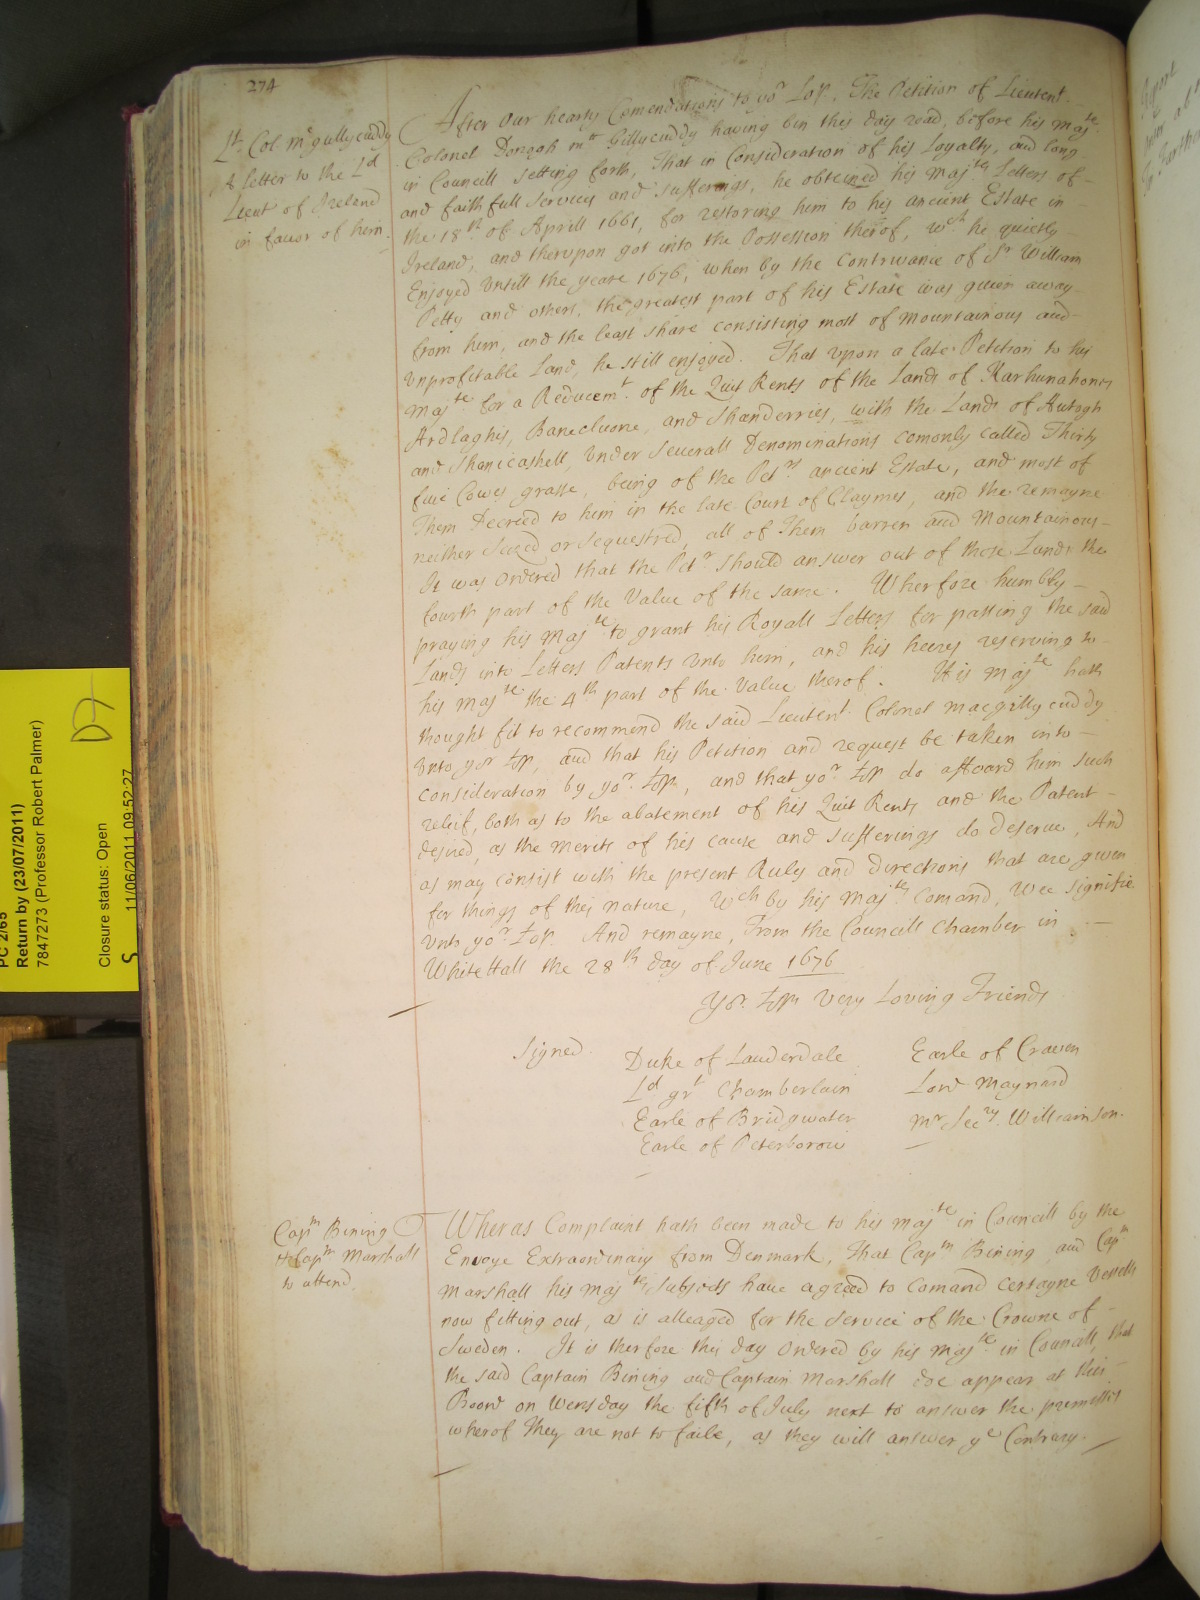 274
Lt. Col. mcgullycuddy
A letter to the Ld
Lieut of Ireland
in favor of him.
After Our hearty Comendations to yor Lop, The Petition of Lieutent.
Colonel Donogh mac Gillycuddy having bin this day read, before his Majte.
in Councill setting forth, That in Consideration of his Loyalty, and long
and faithfull Services and Sufferings, he obteined his Majtes Letters of
the 18th of Aprill 1661, for restoring him to his ancient Estate in
Ireland, and therupon got into the Possession therof, wch he quietly
Enjoyed Untill the yeare 1676, when by the Contrivance of Sr William
Petty and others, the greatest part of his Estate was given away
from him, and the least share consisting most of Mountainous and
Unprofitable Land, he still enjoyed. That upon a late Petition to his
Majte for a Reducemt. of the Quit Rents of the Lands of Karhunahones
Ardlaghis, Banecluone, and Shanderries, with the Lands of Autogh
and Shanicashell, Under Severall Denominations comonly called Thirty
five Cowes grasse, being of the Petrs. ancient Estate, and most of
Them Decreed to him in the late Court of Claymes, and the remayne
neither Seized or Sequestred, all of Them barren and Mountainous
It was Ordered that the Petr. should answer out of these Lands the
fourth part of the Value of the same. Wherfore humbly
praying his Majte to grant his Royall Letters for passing the said
Lands into Letters Patents Unto him, and his heeres reserving to
his Majte the 4th part of the Value therof. His Majte hath
thought fit to recommend the said Lieutent. Colonel Macgillycuddy
Unto yor Lop, and that his Petition and request be taken into
consideration by yor. Lop, and that yor. Lop do afford him such
releif, both as to the abatement of his Quit Rents and the Patent
desired, as the merits of his cause and sufferings do deserve, And
as may consist with the present Rules and directions that are given
for things of this nature, Wch by his Majts. Comand, Wee signifie
Unto yor. Lop. And remayne, From the Councill Chamber in
White Hall the 28th day of June 1676
Yor. Lops Very Loving Friends
Signed.
Duke of Lauderdale
Ld grt Chamberlain
Earle of Bridgwater
Earle of Peterborow
Earle of Craven
Lord Maynard
Mr Secry. Williamson.
Capn Bining
& Capn Marshall
to attend.
Wheras Complaint hath been made to his Majte in Councill by the
Envoye Extraordinary from Denmark, That Capn Bining and Capn
Marshall his Majts Subjects have agreed to Comand certayne Vessells
now fitting out, as is alleaged for the Service of the Crowne of
Sweden. It is therfore this day Ordered by his Majte in Councill, that
the said Captain Bining and Captain Marshall doe appear at this
Board on Wensday the fifth of July next to answer the premisses
wherof they are not to faile, as they will answer ye Contrary.
PC 2/65
Return by (23/07/2011)
7847273 (Professor Robert Palmer)
Closure status: Open
S 11/06/2011 09:52:27
D7